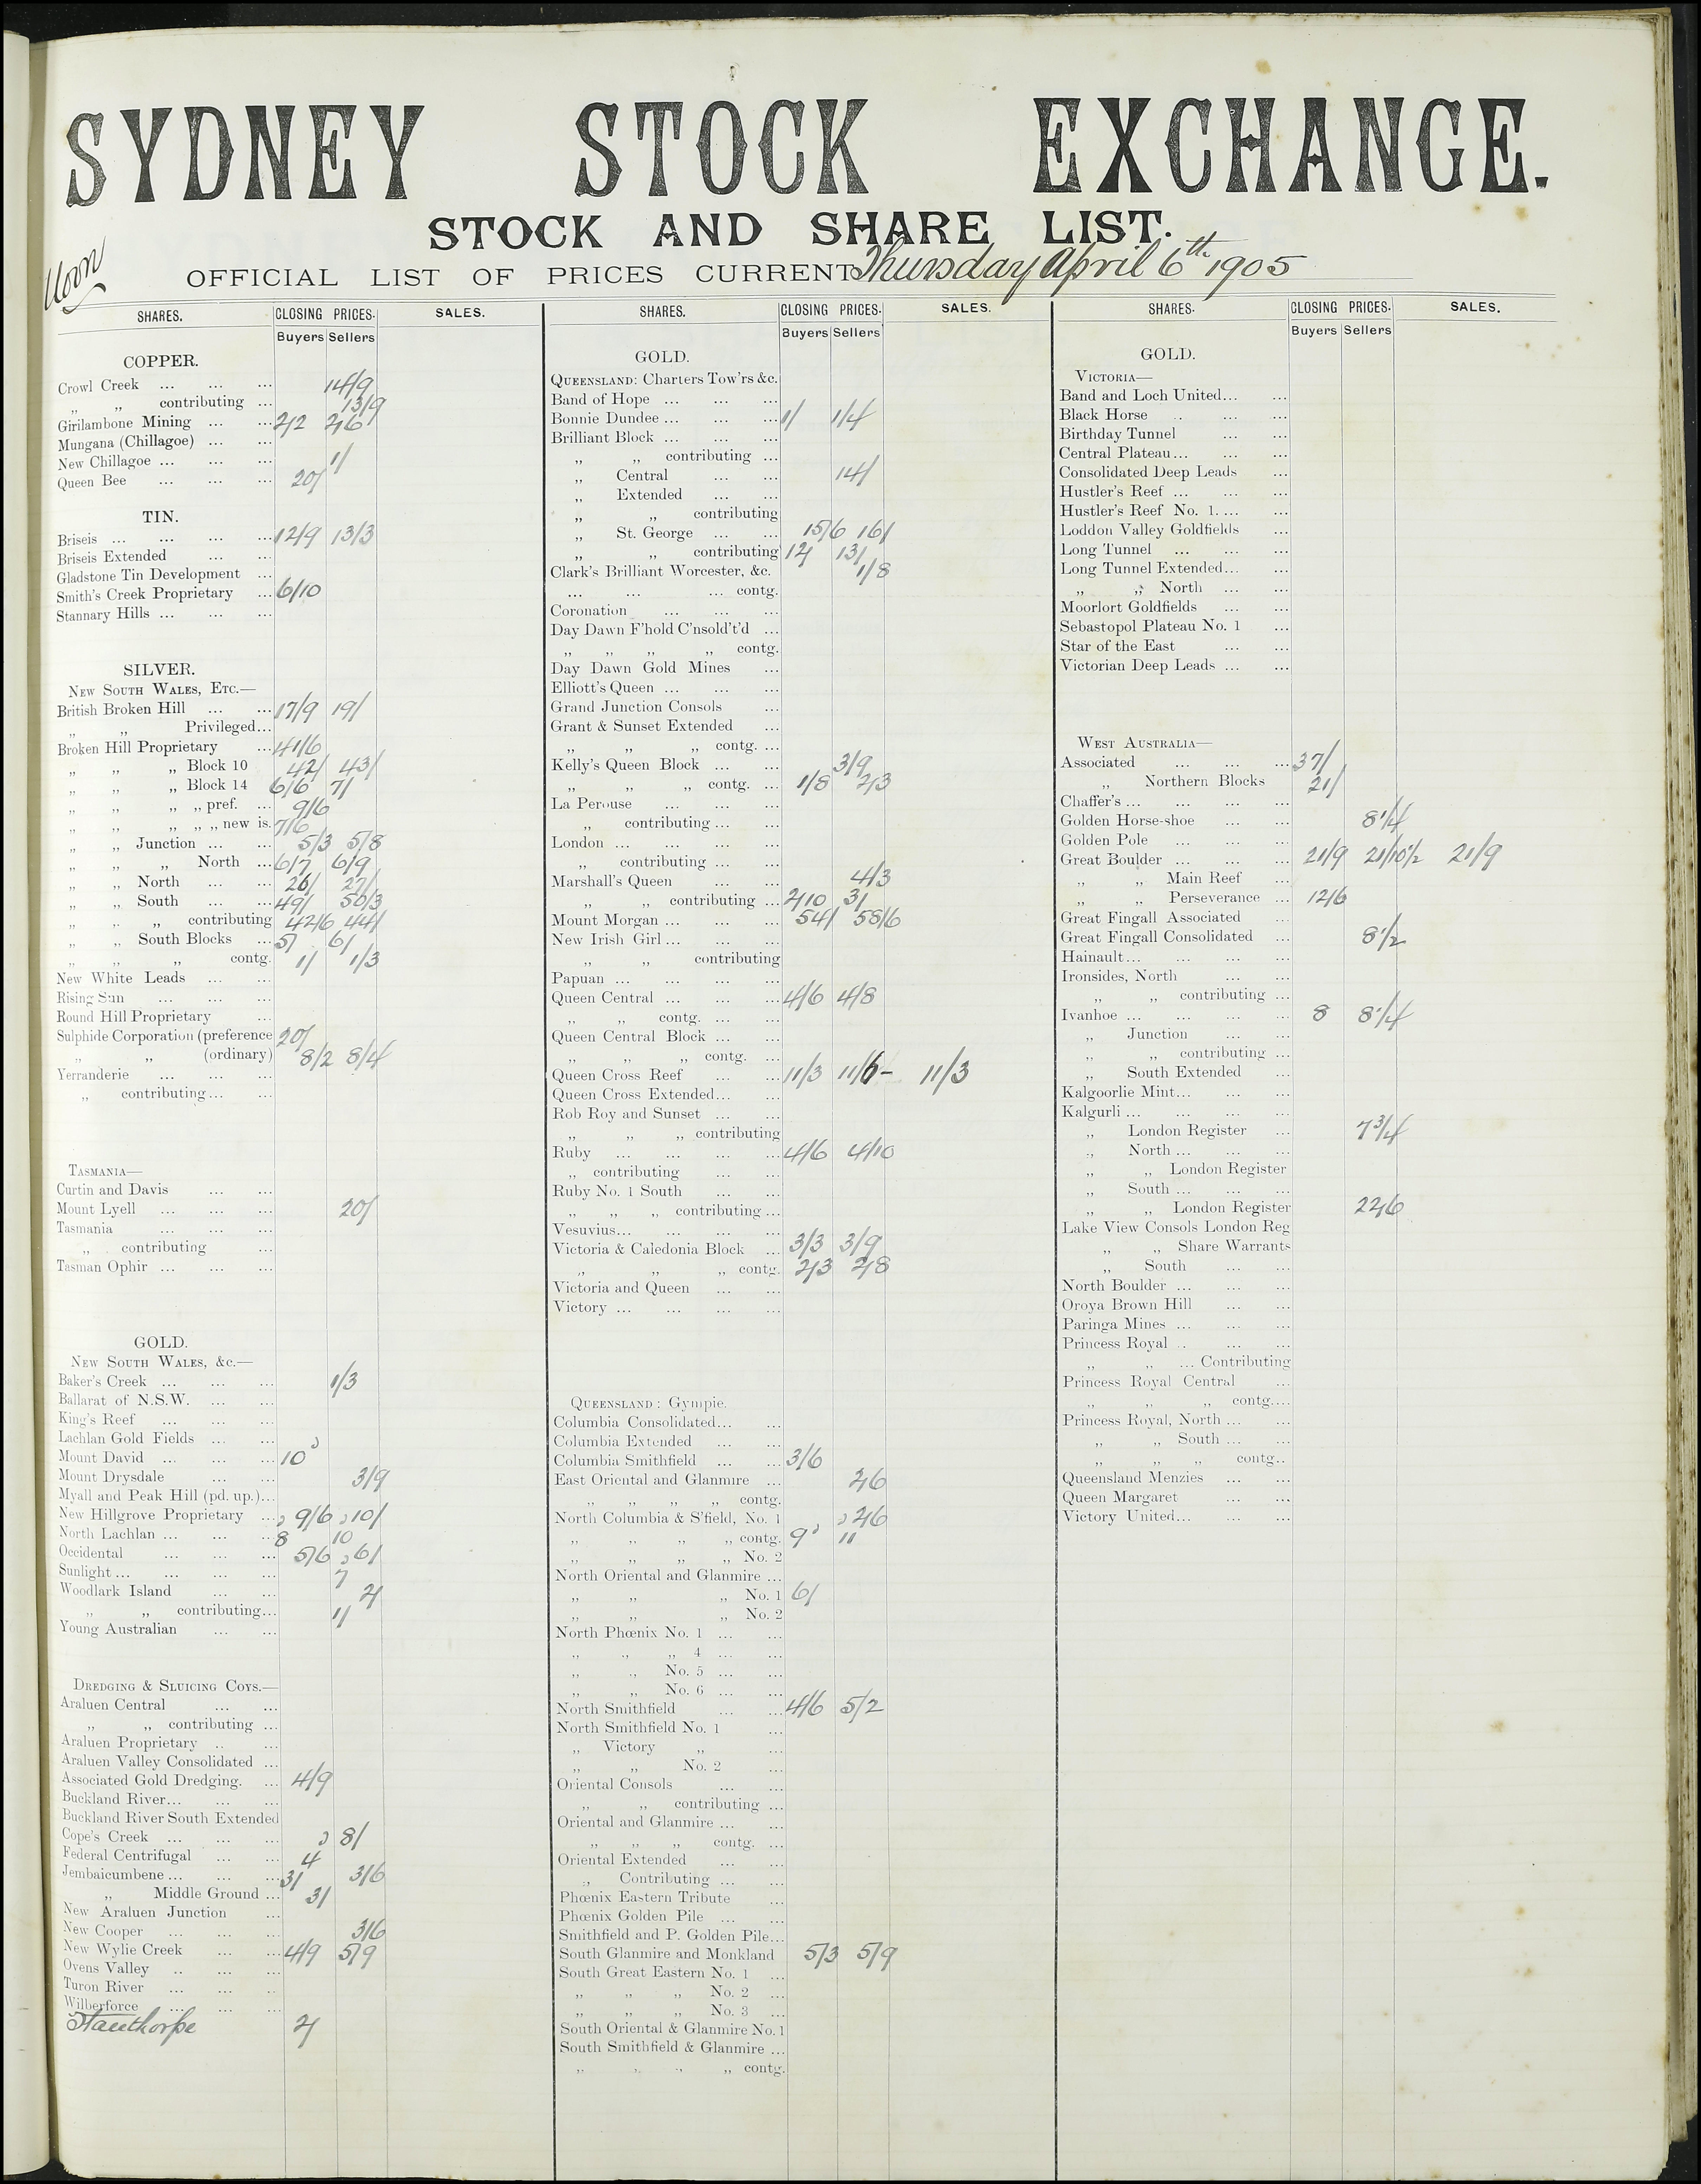 SYDNEY STOCK EXCHANGE.
STOCK AND SHARE LIST.
Noon
OFFICIAL LIST OF PRICES CURRENT Thursday April 6th 1905
SHARES. CLOSING PRICES. SALES.
Buyers Sellers
COPPER.
Crowl Creek ... ... ... 14/9
„ „ contributing ... 13/9
Girilambone Mining ... ... 2/2 2/6
Mungana (Chillagoe) ... ...
New Chillagoe ... ... ... 1/
Queen Bee ... ... ... 20/
TIN.
Briseis ... ... ... ... 12/9 13/3
Briseis Extended ... ...
Gladstone Tin Development ...
Smith's Creek Proprietary ... 6/10
Stannary Hills ... ... ...
SILVER.
NEW SOUTH WALES, ETC.—
British Broken Hill ... ... 17/9 19/
„ „ Privileged...
Broken Hill Proprietary ... 41/6
„ „ „ Block 10 42/ 43/
„ „ „ Block 14 6/6 7/
„ „ „ „ pref. ... 9/6
„ „ „ „ „ new is. 7/6
„ „ Junction ... ... 5/3 5/8
„ „ „ North ... 6/7 6/9
„ „ North ... ... 26/ 27/
„ „ South ... ... 49/ 50/3
„ „ „ contributing 42/6 44/
„ „ South Blocks ... 5/ 6/
„ „ „ contg. 1/ 1/3
New White Leads ... ...
Rising Sun ... ... ...
Round Hill Proprietary ...
Sulphide Corporation (preference 20/
„ „ (ordinary) 8/2 8/4
Yerranderie ... ... ...
„ contributing... ...
TASMANIA—
Curtin and Davis ... ...
Mount Lyell ... ... ... 20/
Tasmania ... ... ...
„ contributing ...
Tasman Ophir ... ... ...
GOLD.
NEW SOUTH WALES, &c.—
Baker's Creek ... ... ... 1/3
Ballarat of N.S.W. ... ...
King's Reef ... ... ...
Lachlan Gold Fields ... ...
Mount David ... ... ... 10d
Mount Drysdale ... ... 3/9
Myall and Peak Hill (pd. up.)...
New Hillgrove Proprietary ... 9/6 10/
North Lachlan ... ... ... 8 10
Occidental ... ... ... 5/6 6/
Sunlight ... ... ... ... 7
Woodlark Island ... ... 2/
„ „ contributing... 1/
Young Australian ... ...
DREDGING & SLUICING COYS.—
Araluen Central ... ...
„ „ contributing ...
Araluen Proprietary .. ...
Araluen Valley Consolidated ...
Associated Gold Dredging. ... 4/9
Buckland River... ... ...
Buckland River South Extended
Cope's Creek ... ... ... 8/
Federal Centrifugal ... ... 4
Jembaicumbene ... ... ... 3/ 3/6
„ Middle Ground ... 3/
New Araluen Junction ...
New Cooper ... ... ... 3/6
New Wylie Creek ... ... 4/9 5/9
Ovens Valley .. ... ...
Turon River ... ... ..
Wilberforce ... ... ...
Stanthorpe 2/
SHARES. CLOSING PRICES. SALES.
Buyers Sellers
GOLD.
QUEENSLAND: Charters Tow'rs &c.
Band of Hope ... ... ...
Bonnie Dundee ... ... ... 1/ 1/4
Brilliant Block ... ... ...
„ „ contributing ...
„ Central ... ... 14/
„ Extended ... ...
„ „ contributing
„ St. George ... ... 15/6 16/
„ „ contributing 12/ 13/
Clark's Brilliant Worcester, &c. 1/8
... ... ... contg.
Coronation ... ... ...
Day Dawn F'hold C'nsold't'd ...
„ „ „ „ contg.
Day Dawn Gold Mines ...
Elliott's Queen ... ... ...
Grand Junction Consols ...
Grant & Sunset Extended ...
„ „ „ contg. ...
Kelly's Queen Block ... ... 3/9
„ „ „ contg. ... 1/8 2/3
La Perouse ... ... ...
„ contributing ... ...
London ... ... ... ...
„ contributing ... ...
Marshall's Queen ... ... 4/3
„ „ contributing ... 2/10 3/
Mount Morgan ... ... ... 54/ 58/6
New Irish Girl ... ... ...
„ „ contributing
Papuan ... ... ... ...
Queen Central ... ... ... 4/6 4/8
„ „ contg. ... ...
Queen Central Block ... ...
„ „ „ contg. ...
Queen Cross Reef ... ... 11/3 11/6- 11/3
Queen Cross Extended... ...
Rob Roy and Sunset ... ...
„ „ „ contributing
Ruby ... ... ... ... 4/6 4/10
„ contributing ... ...
Ruby No. 1 South ... ...
„ „ „ contributing ...
Vesuvius... ... ... ...
Victoria & Caledonia Block ... 3/3 3/9
„ „ „ contg. 2/3 2/8
Victoria and Queen ... ...
Victory ... ... ... ...
QUEENSLAND: Gympie.
Columbia Consolidated... ...
Columbia Extended ... ...
Columbia Smithfield ... ... 3/6
East Oriental and Glanmire ... 2/6
„ „ „ „ contg.
North Columbia & S'field, No. 1 2/6
„ „ „ „ contg. 9d 11
„ „ „ „ No. 2
North Oriental and Glanmire ...
„ „ „ No. 1 6/
„ „ „ No. 2
North Phœnix No. 1 ... ...
„ „ „ 4 ... ...
„ „ No. 5 ... ...
„ „ No. 6 ... ...
North Smithfield ... ... 4/6 5/2
North Smithfield No. 1 ...
„ Victory „ ...
„ „ No. 2 ...
Oriental Consols ... ...
„ „ contributing ...
Oriental and Glanmire ... ...
„ „ „ contg. ...
Oriental Extended ... ...
„ Contributing ... ...
Phœnix Eastern Tribute ...
Phœnix Golden Pile ... ...
Smithfield and P. Golden Pile...
South Glanmire and Monkland 5/3 5/9
South Great Eastern No. 1 ...
„ „ „ No. 2 ...
„ „ „ No. 3 ...
South Oriental & Glanmire No. 1
South Smithfield & Glanmire ...
„ „ „ „ contg.
SHARES. CLOSING PRICES. SALES.
Buyers Sellers
GOLD.
VICTORIA—
Band and Loch United... ...
Black Horse .. ... ...
Birthday Tunnel ... ...
Central Plateau... ... ...
Consolidated Deep Leads ...
Hustler's Reef ... ... ...
Hustler's Reef No. 1. ... ...
Loddon Valley Goldfields ...
Long Tunnel ... ... ...
Long Tunnel Extended... ...
„ „ North ... ...
Moorlort Goldfields ... ...
Sebastopol Plateau No. 1 ...
Star of the East ... ...
Victorian Deep Leads ... ...
WEST AUSTRALIA—
Associated ... ... ... 37/
„ Northern Blocks 21/
Chaffer's ... ... ... ...
Golden Horse-shoe ... ... 8 1/4
Golden Pole ... ... ...
Great Boulder ... ... ... 21/9 21/10 1/2 21/9
„ „ Main Reef ...
„ „ Perseverance ... 12/6
Great Fingall Associated ...
Great Fingall Consolidated ... 8 1/2
Hainault... ... ... ...
Ironsides, North ... ...
„ „ contributing ...
Ivanhoe ... ... ... ... 8 8 1/4
„ Junction ... ...
„ „ contributing ...
„ South Extended ...
Kalgoorlie Mint... ... ...
Kalgurli ... ... ... ...
„ London Register ... 7 3/4
„ North ... ... ...
„ „ London Register
„ South ... ... ...
„ „ London Register 22/6
Lake View Consols London Reg
„ „ Share Warrants
„ South ... ...
North Boulder ... ... ...
Oroya Brown Hill ... ...
Paringa Mines ... ... ...
Princess Royal .. ... ...
„ „ ... Contributing
Princess Royal Central ...
„ „ „ contg....
Princess Royal, North ... ...
„ „ South ... ...
„ „ „ contg..
Queensland Menzies ... ...
Queen Margaret ... ...
Victory United... ... ...